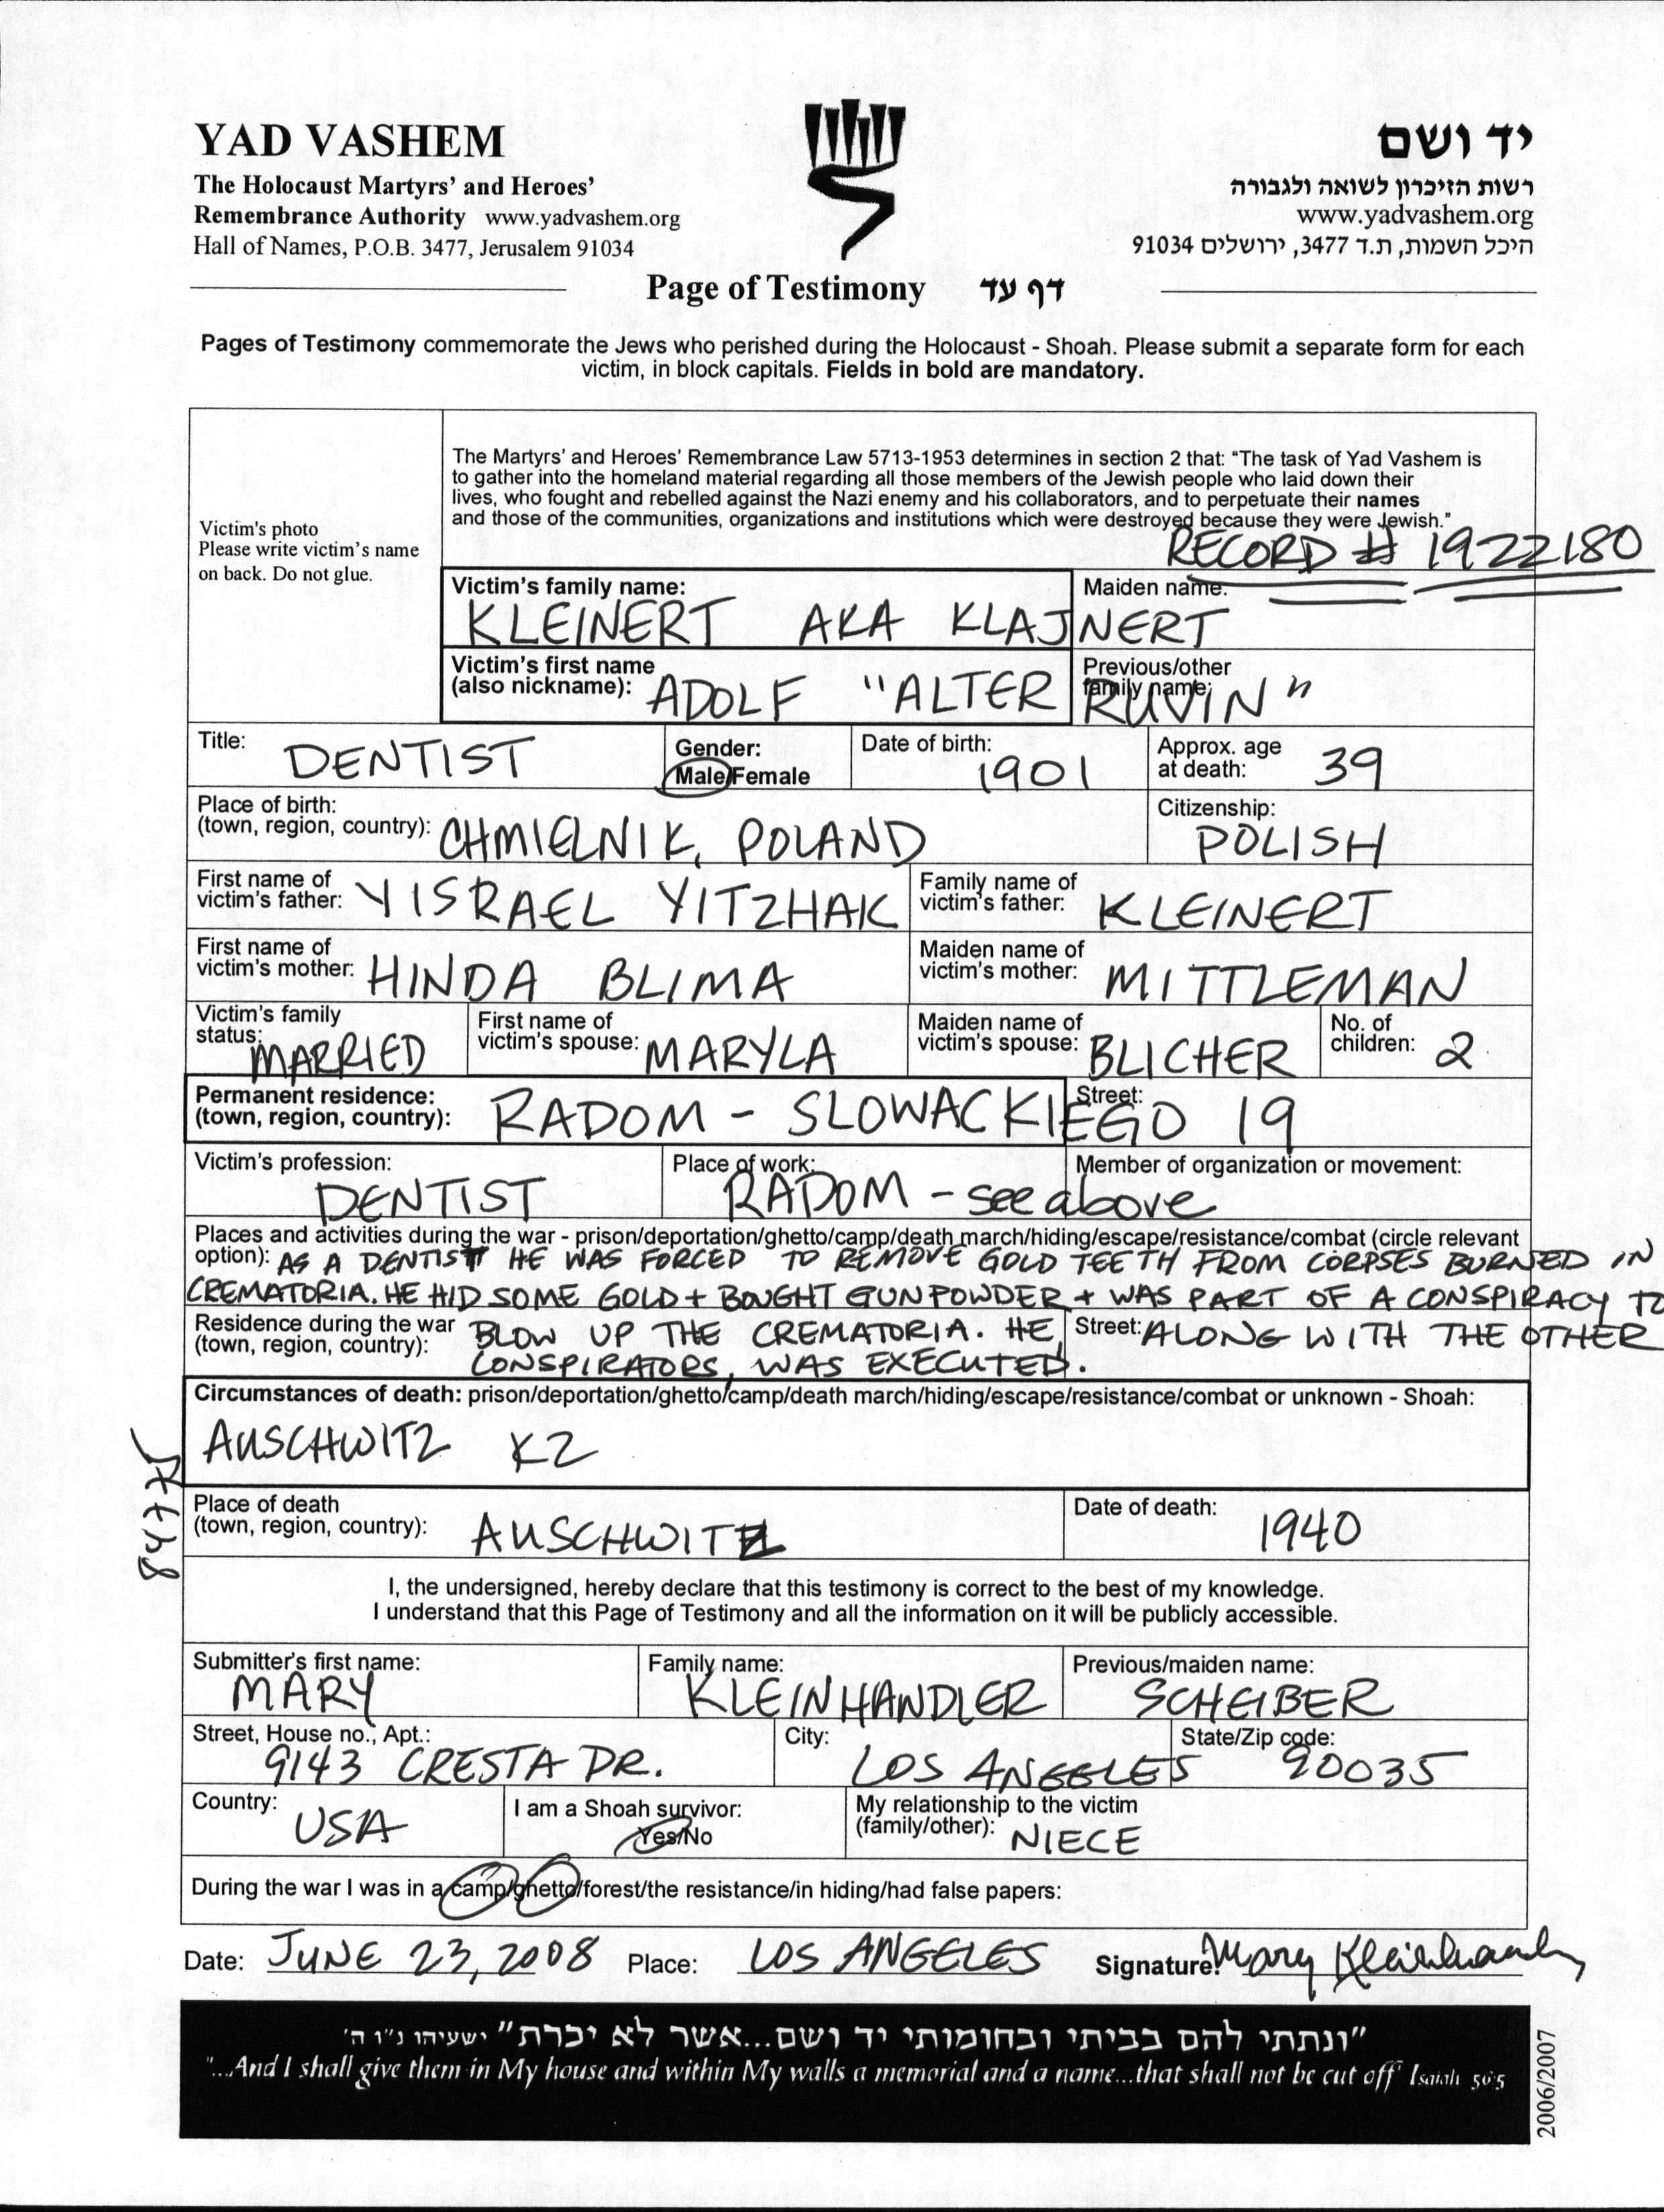 YAD VASHEM
The Holocaust Martyrs' and Heroes'
Remembrance Authority www.yadvashem.org
Hall of Names, P.O.B. 3477, Jerusalem 91034
יד ושם
רשות הזיכרון לשואה ולגבורה
www.yadvashem.org
היכל השמות, ת.ד 3477, ירושלים 91034
Page of Testimony דף עד
Pages of Testimony commemorate the Jews who perished during the Holocaust - Shoah. Please submit a separate form for each
victim, in block capitals. Fields in bold are mandatory.
Victim's photo
Please write victim's name
on back. Do not glue.
The Martyrs' and Heroes' Remembrance Law 5713-1953 determines in section 2 that: "The task of Yad Vashem is
to gather into the homeland material regarding all those members of the Jewish people who laid down their
lives, who fought and rebelled against the Nazi enemy and his collaborators, and to perpetuate their names
and those of the communities, organizations and institutions which were destroyed because they were Jewish."
RECORD # 1922180
Victim's family name: Maiden name:
KLEINERT AKA KLAJNERT
Victim's first name Previous/other
(also nickname): family name:
ADOLF "ALTER RUVIN"
Title: DENTIST Gender: Male/Female Date of birth: 1901 Approx. age at death: 39
Place of birth:
(town, region, country): CHMIELNIK, POLAND Citizenship: POLISH
First name of
victim's father: YISRAEL YITZHAK Family name of victim's father: KLEINERT
First name of
victim's mother: HINDA BLIMA Maiden name of victim's mother: MITTLEMAN
Victim's family
status: MARRIED First name of victim's spouse: MARYLA Maiden name of victim's spouse: BLICHER No. of children: 2
Permanent residence: Street:
(town, region, country): RADOM - SLOWACKIEGO 19
Victim's profession: Place of work: Member of organization or movement:
DENTIST RADOM - see above
Places and activities during the war - prison/deportation/ghetto/camp/death march/hiding/escape/resistance/combat (circle relevant
option): AS A DENTIST HE WAS FORCED TO REMOVE GOLD TEETH FROM CORPSES BURNED IN
CREMATORIA. HE HID SOME GOLD + BOUGHT GUNPOWDER + WAS PART OF A CONSPIRACY TO
Residence during the war
(town, region, country): BLOW UP THE CREMATORIA. HE, Street: ALONG WITH THE OTHER
CONSPIRATORS, WAS EXECUTED.
Circumstances of death: prison/deportation/ghetto/camp/death march/hiding/escape/resistance/combat or unknown - Shoah:
AUSCHWITZ KZ
84775
Place of death
(town, region, country): AUSCHWITZ Date of death: 1940
I, the undersigned, hereby declare that this testimony is correct to the best of my knowledge.
I understand that this Page of Testimony and all the information on it will be publicly accessible.
Submitter's first name: Family name: Previous/maiden name:
MARY KLEINHANDLER SCHEIBER
Street, House no., Apt.: City: State/Zip code:
9143 CRESTA DR. LOS ANGELES 90035
Country: USA I am a Shoah survivor: Yes/No My relationship to the victim
(family/other): NIECE
During the war I was in a camp/ghetto/forest/the resistance/in hiding/had false papers:
Date: JUNE 23, 2008 Place: LOS ANGELES Signature: Mary Kleinhandler
"ונתתי להם בביתי ובחומותי יד ושם...אשר לא יכרת" ישעיהו נ"ו ה'
"...And I shall give them in My house and within My walls a memorial and a name...that shall not be cut off" Isaiah 56:5
2006/2007